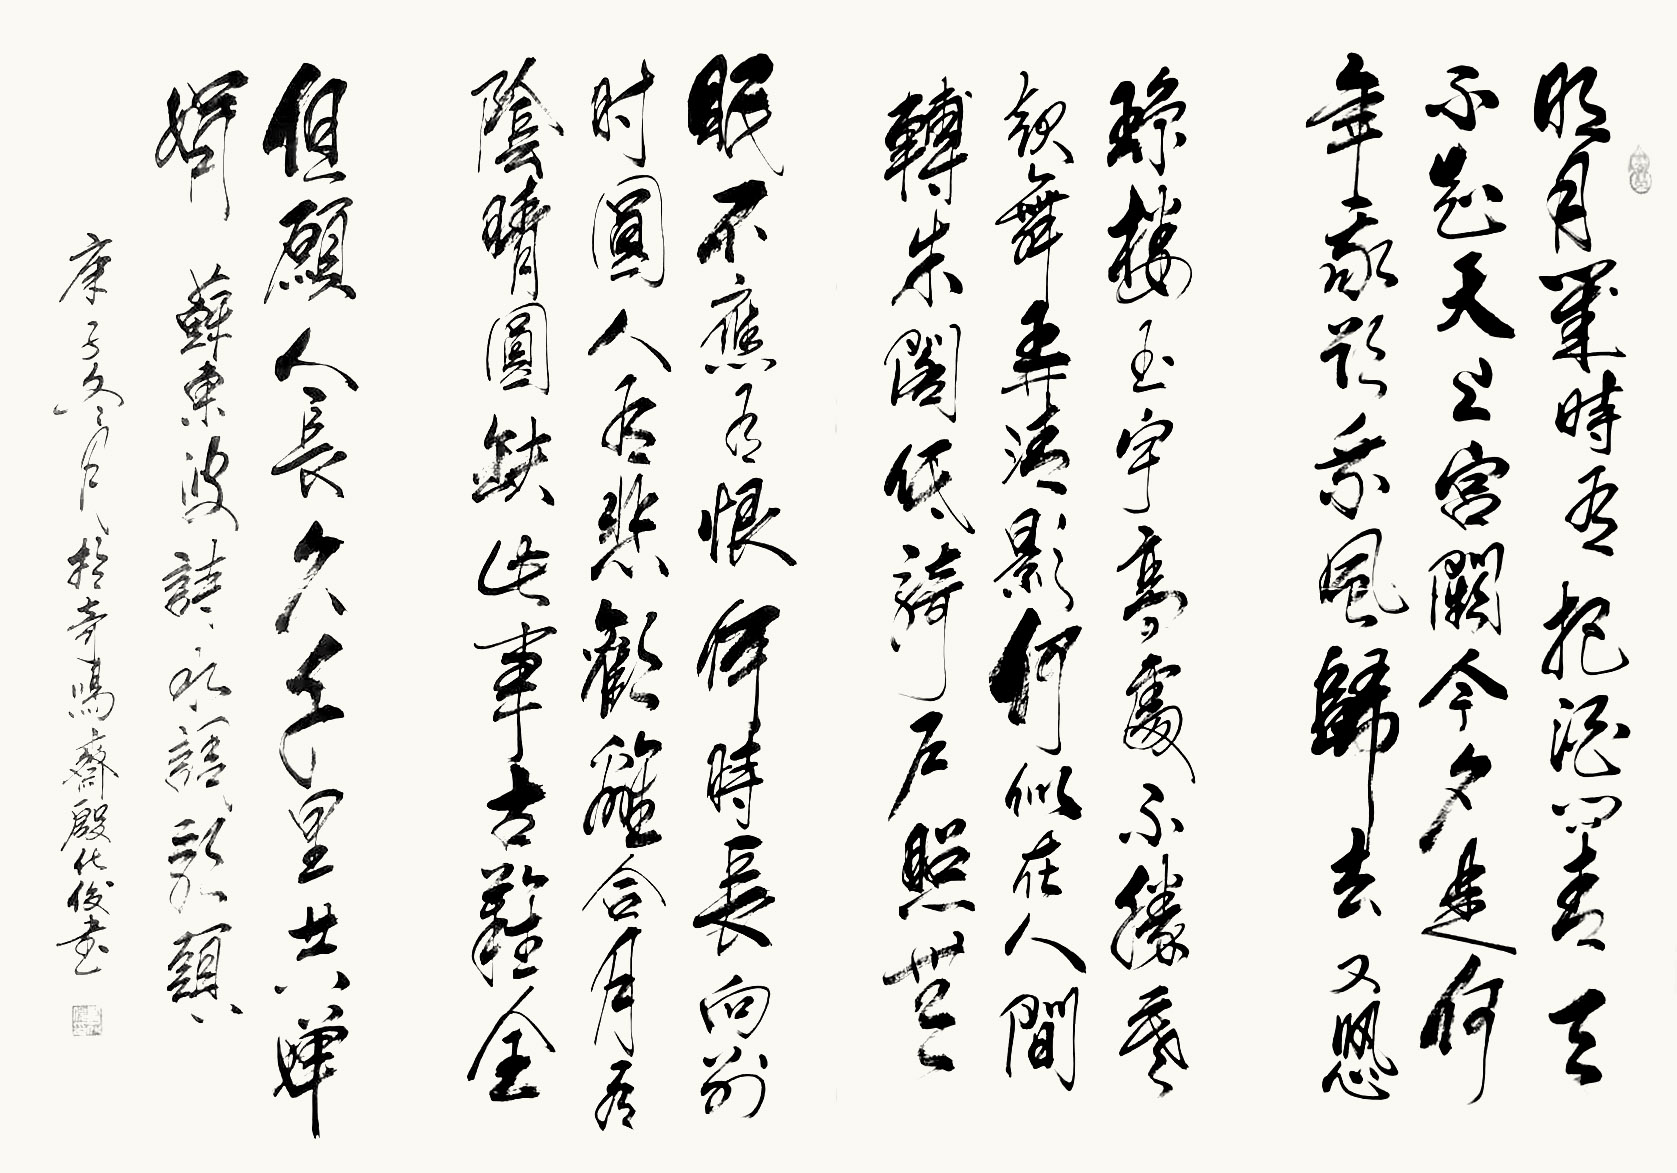 明月幾時有把酒问青天
不知天上宮闕今夕是何
年我欲乘風歸去又恐
琼樓玉宇高處不勝寒
起舞弄清影何似在人間
轉朱閣低綺户照無
眠不應有恨何時長向别
时圓人有悲歡離合月有
陰晴圓缺此事古難全
但願人長久千里共嬋
娟 蘇東坡詩水調歌頭
庚子冬月於奇鳴齋殷化俊書